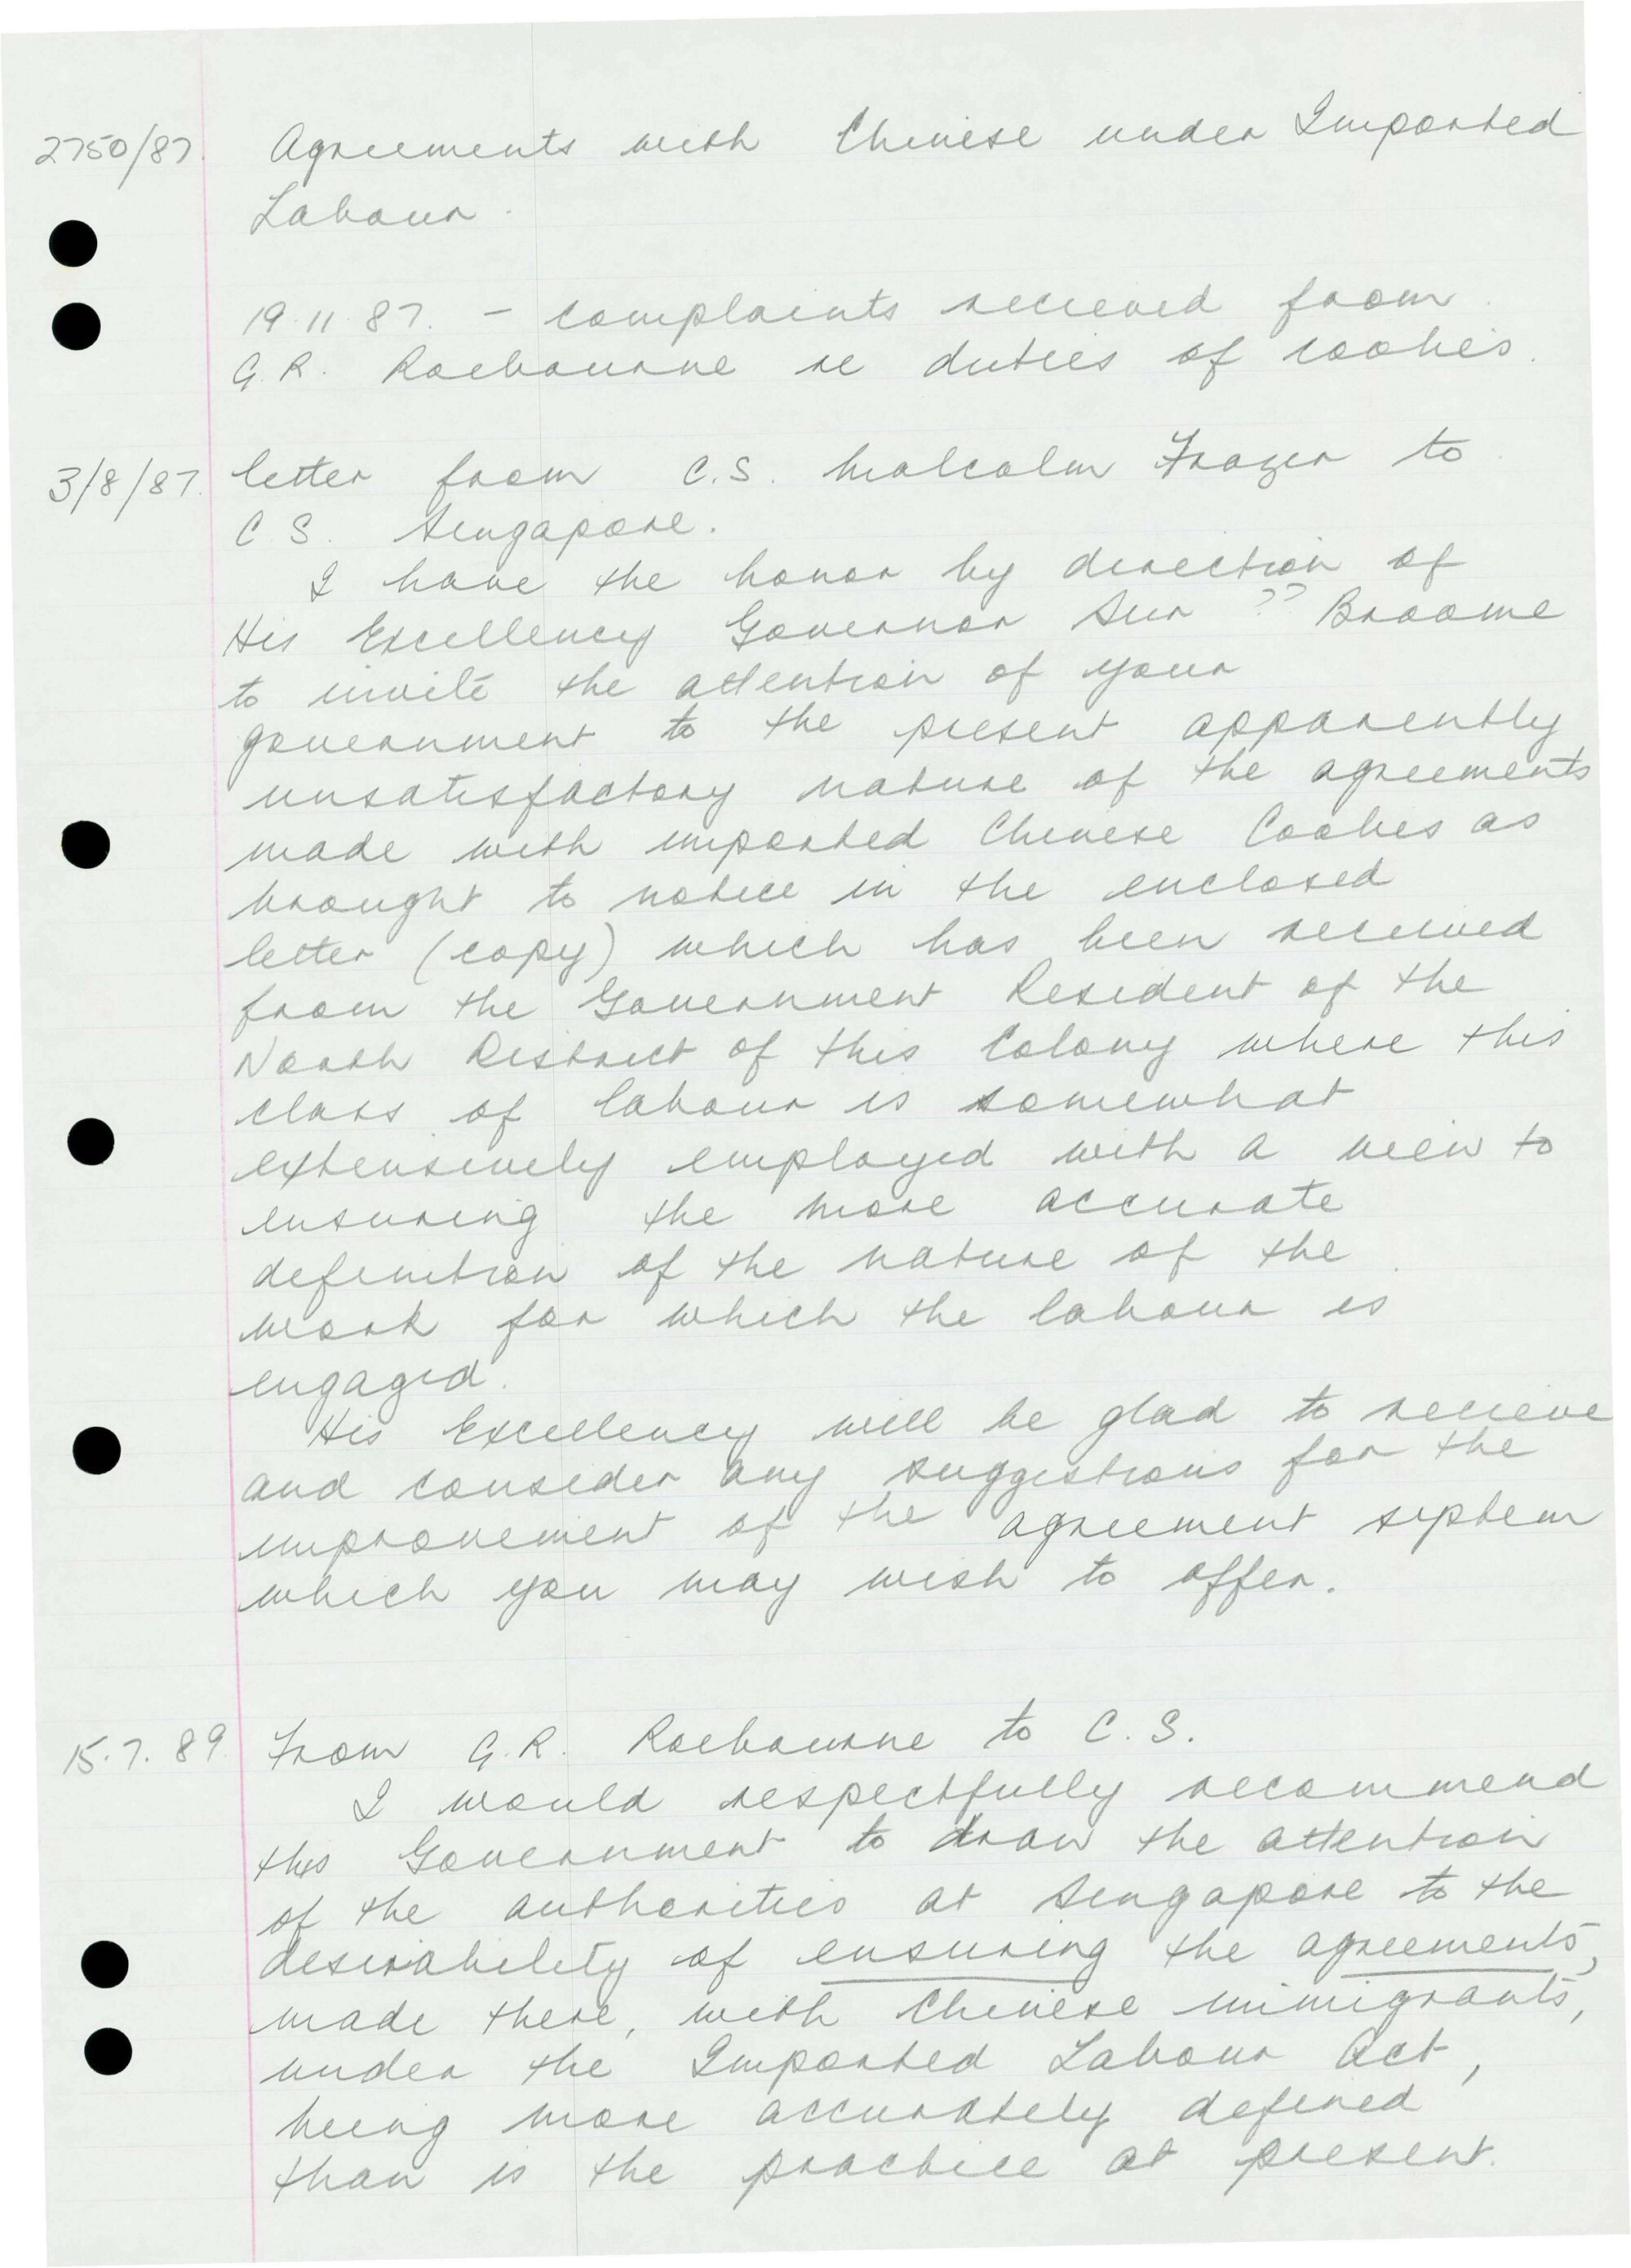 2750/87. Agreements with Chinese under Imported
Labour.
19.11.87. - complaints recieved from
G.R. Roebourne re duties of coolies.
3/8/87. letter from C.S. Malcolm Frazer to
C.S. Singapore.
I have the honor by direction of
His Excellency Governor Sir ?? Broome
to invite the attention of your
government to the present apparently
unsatisfactory nature of the agreements
made with imported Chinese Coolies as
brought to notice in the enclosed
letter (copy) which has been received
from the Government Resident of the
North District of this Colony where this
class of labour is somewhat
extensively employed with a view to
ensuring the more accurate
definition of the nature of the
work for which the labour is
engaged.
His Excellency will be glad to recieve
and consider any suggestions for the
improvement of the agreement system
which you may wish to offer.
15.7.89. From G.R. Roebourne to C.S.
I would respectfully recommend
this Government to draw the attention
of the authorities at Singapore to the
desirability of ensuring the agreements,
made there, with Chinese immigrants,
under the Imported Labour Act,
being more accurately defined
than is the practice at present.